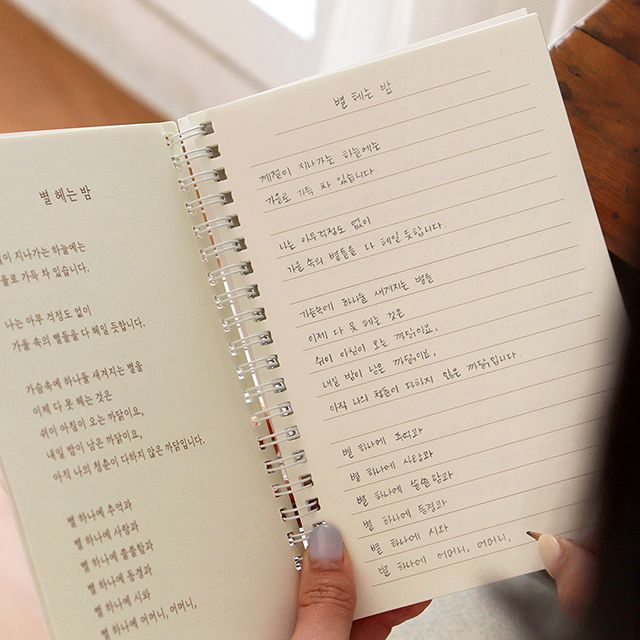 별 헤는 밤
이 지나가는 하늘에는
을로 가득 차 있습니다.
나는 아무 걱정도 없이
가을 속의 별들을 다 헤일 듯합니다.
가슴속에 하나둘 새겨지는 별을
이제 다 못 헤는 것은
쉬이 아침이 오는 까닭이요,
내일 밤이 남은 까닭이요,
아직 나의 청춘이 다하지 않은 까닭입니다.
별 하나에 추억과
별 하나에 사랑과
별 하나에 쓸쓸함과
별 하나에 동경과
별 하나에 시와
별 하나에 어머니, 어머니,
별 헤는 밤
계절이 지나가는 하늘에는
가을로 가득 차 있습니다.
나는 아무걱정도 없이
가을 속의 별들을 다 헤일 듯합니다.
가슴속에 하나둘 새겨지는 별을
이제 다 못 헤는 것은
쉬이 아침이 오는 까닭이요,
내일 밤이 남은 까닭이요,
아직 나의 청춘이 다하지 않은 까닭입니다.
별 하나에 추억과
별 하나에 사랑과
별 하나에 쓸쓸함과
별 하나에 동경과
별 하나에 시와
별 하나에 어머니, 어머니,